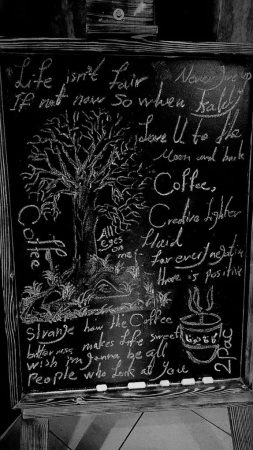 Life isn't fair
Never give up
If not now so when
Kaldi
Love U to the
Moon and back
Coffee,
Creative lighter
fluid
For every negative
there is positive
Coffee
All
Eyes
on
me
Strange how the Coffee
makes life sweet
wish I'm gonna be all
People who look at you
2Pac